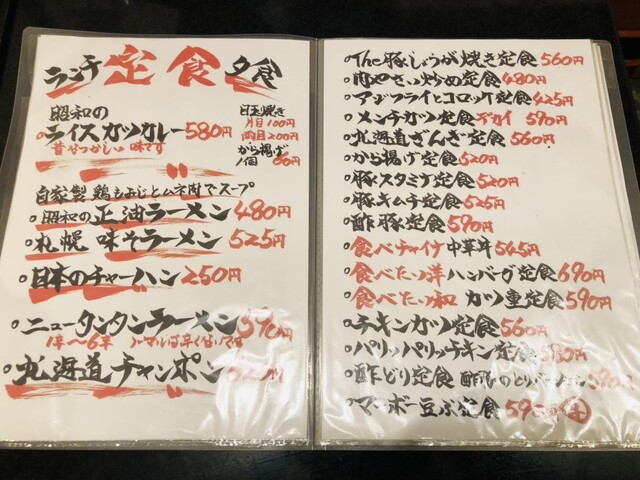 ランチ 定食 夕食
昭和の
ライスカツカレー 580円
昔なつかしい味です
目玉焼き
片目100円
両目200円
から揚げ
1個 60円
自家製 鶏もみじとムネ肉でスープ
昭和の正油ラーメン 480円
札幌 味そラーメン 525円
日本のチャーハン 250円
ニュータンタンラーメン 590円
1辛〜6辛 ノーマルは辛くないです
北海道チャンポン
The豚しょうが焼き定食 560円
肉やさい炒め定食 480円
アジフライとコロッケ定食 425円
メンチカツ定食 デカイ 590円
北海道ざんぎ定食 560円
から揚げ定食 520円
豚スタミナ定食 520円
豚キムチ定食 525円
酢豚定食 590円
食べチャイナ 中華丼 545円
食べたっ洋 ハンバーグ定食 690円
食べたっ和 カツ重定食 590円
チキンカツ定食 560円
パリッパリッチキン定食
酢どり定食 酢豚のとりバージョン 590円
マーボー豆ふ定食